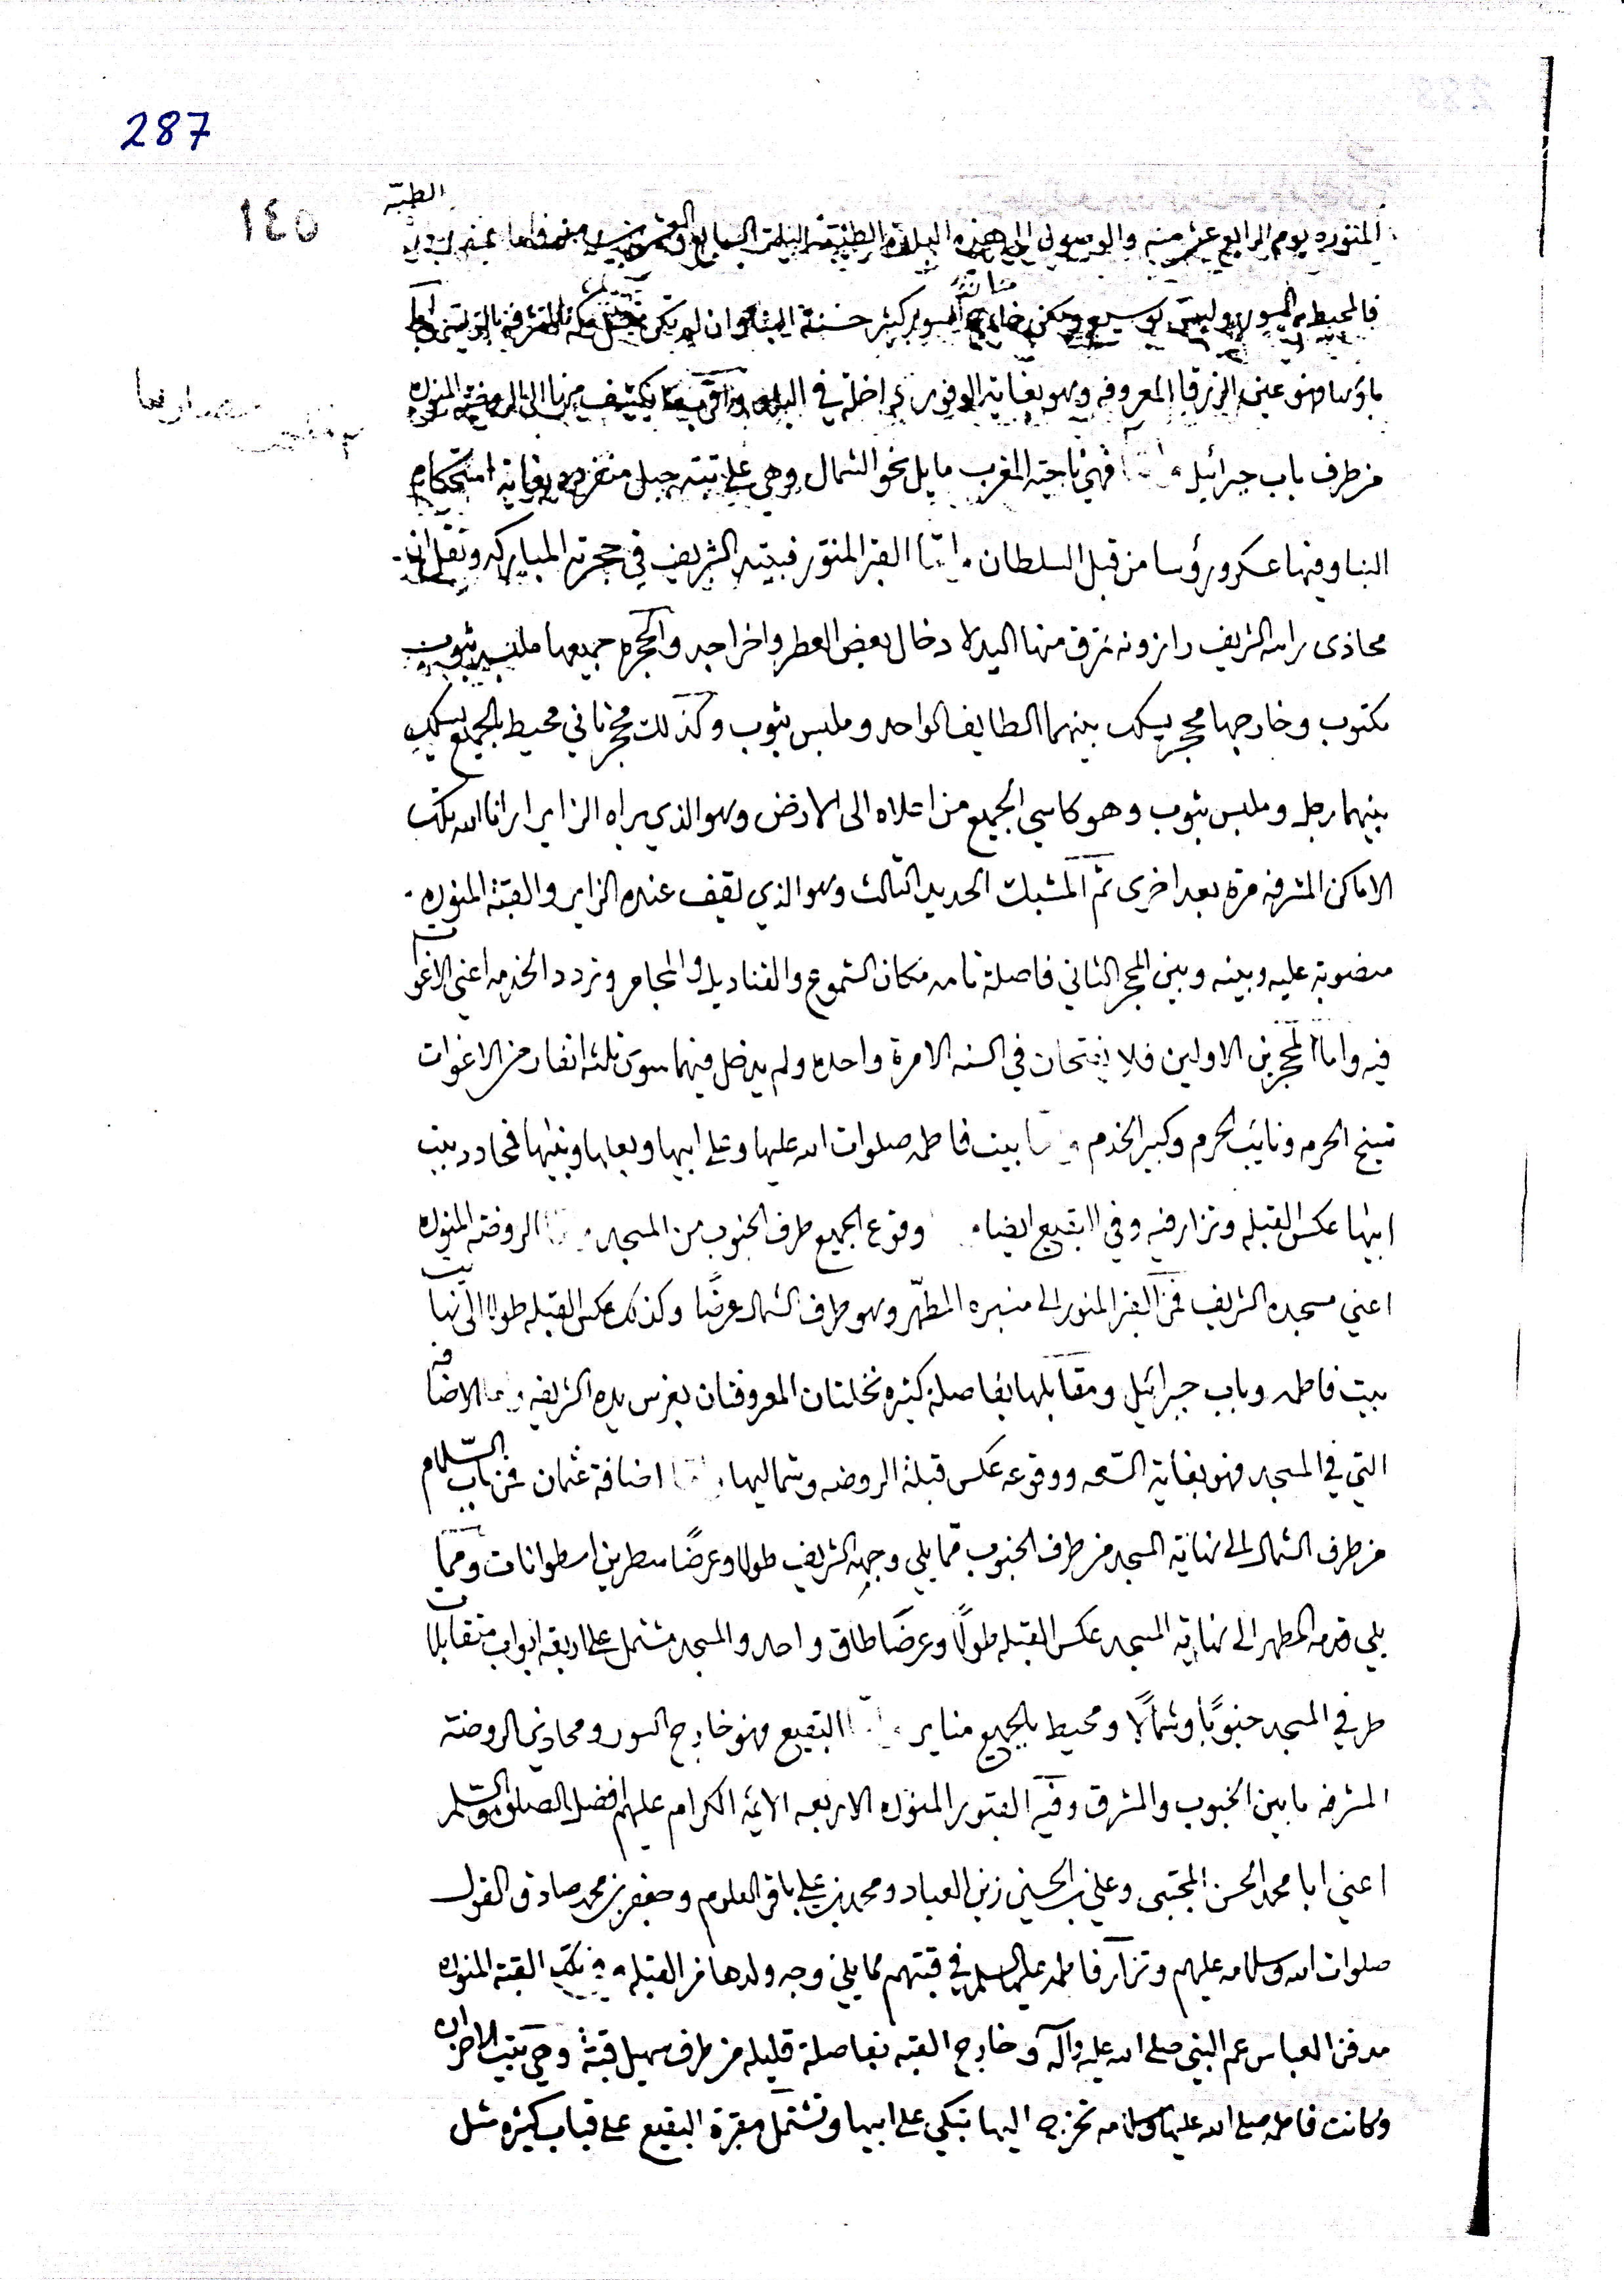 287
١٤٥
الطيبه
المنوره يوم الرابع عشر منه والوصول الى هذه البلدة الطيبة
فالمحيط السور وليس بوسيع خارج السور كثير حسنة البناء وان لم يكن مثل مكة المشرفة
ماؤها فهو عين الزرقا المعروفه وهو بغاية الوفور داخلة في البلد يكشف الروضة المنوره
من طرف باب جبرائيل فهي ناحية المغرب مايل نحو الشمال وهي على تبة جبل منفرد بغاية استحكام
البنا وفيها عسكر ورؤسا من قبل السلطان واما القبر المنور فبيته الشريف في حجرته المباركه ونقل ان
محاذى راسه الشريف رازونه منها اليد لادخال بعض العطر واخراجه والحجرة جميعها ملبسه بثوب
مكتوب وخارجها محجر يسلك بينهما الطايف الواحد وملبس بثوب وكذلك محجر ثاني محيط بالجميع يسلك
بينهما رجل وملبس بثوب وهو كاسي الجميع من اعلاه الى الارض وهو الذي يراه الزاير ارانا الله تلك
الاماكن المشرفه مرة بعد اخرى ثم المشبك الحديد الثالث وهو الذي يقف عنده الزاير والقبة المنوره
منصوبة عليه وبينه وبين المحجر الثاني فاصلة تامه مكان الشموع والقناديل والمجامر وتردد الخدمه اعني الاغوات
فيه واما المحجرين الاولين فلا يفتحان في السنه الا مرة واحده ولم يدخل فيهما سوى ثلثه انفار من الاغوات
شيخ الحرم ونايب الحرم وكبير الخدم بيت فاطمه صلوات الله عليها وعلى ابيها وبعلها وبنيها فمحاذد بيت
ابيها عكس القبله وتزار فيه وفي البقيع ايضا وقوع الجميع طرف الجنوب من المسجد الروضة المنوره
اعني مسجده الشريف فمن القبر المنور الى منبره المطهر وهو طرف الشمال عرضا وكذلك عكس القبله طولا الى نهايت
بيت فاطمه وباب جبرائيل ومقابلها بفاصلة كثيره نخلتان المعروفتان بغرس يده الشريفه الاضافه
التي في المسجد فهو بغاية السعه ووقوعه عكس قبلة الروضه وشماليها اضافة عثمان فمن باب السلام
من طرف الشمال الى نهاية المسجد من طرف الجنوب مما يلي وجهه الشريف طولا وعرضا سطرين اسطوانات ومما
يلي قدمه المطهر الى نهاية المسجد عكس القبله طولا وعرضا طاق واحد والمسجد مشتمل على اربعه ابواب متقابلات
طرفي المسجد جنوبا وشمالا ومحيط بالجميع مناير البقيع فهو خارج السور ومحاذي الروضة
المشرفه ما بين الجنوب والمشرق وفيه القبور المنوره الاربعه الائمه الكرام عليهم افضل الصلوة والسلم
اعني ابا محمد الحسن المجتبى وعلي بن الحسين زين العباد ومحمد بن علي باقر العلوم وجعفر بن محمد صادق القول
صلوات الله وسلامه عليهم وتزار فاطمه عليها السلم في قبتهم مما يلي وجه ولدها من القبله وفي تلك القبة المنوره
مدفن العباس عم النبي صلى الله عليه وآله وخارج القبه بفاصلة قليله من طرف سهيل قبة وهي بيت الاحزان
وكانت فاطمه صلى الله عليها وسلامه تخرج اليها تبكي على ابيها وتشتمل مقبرة البقيع على قباب كثيره مثل